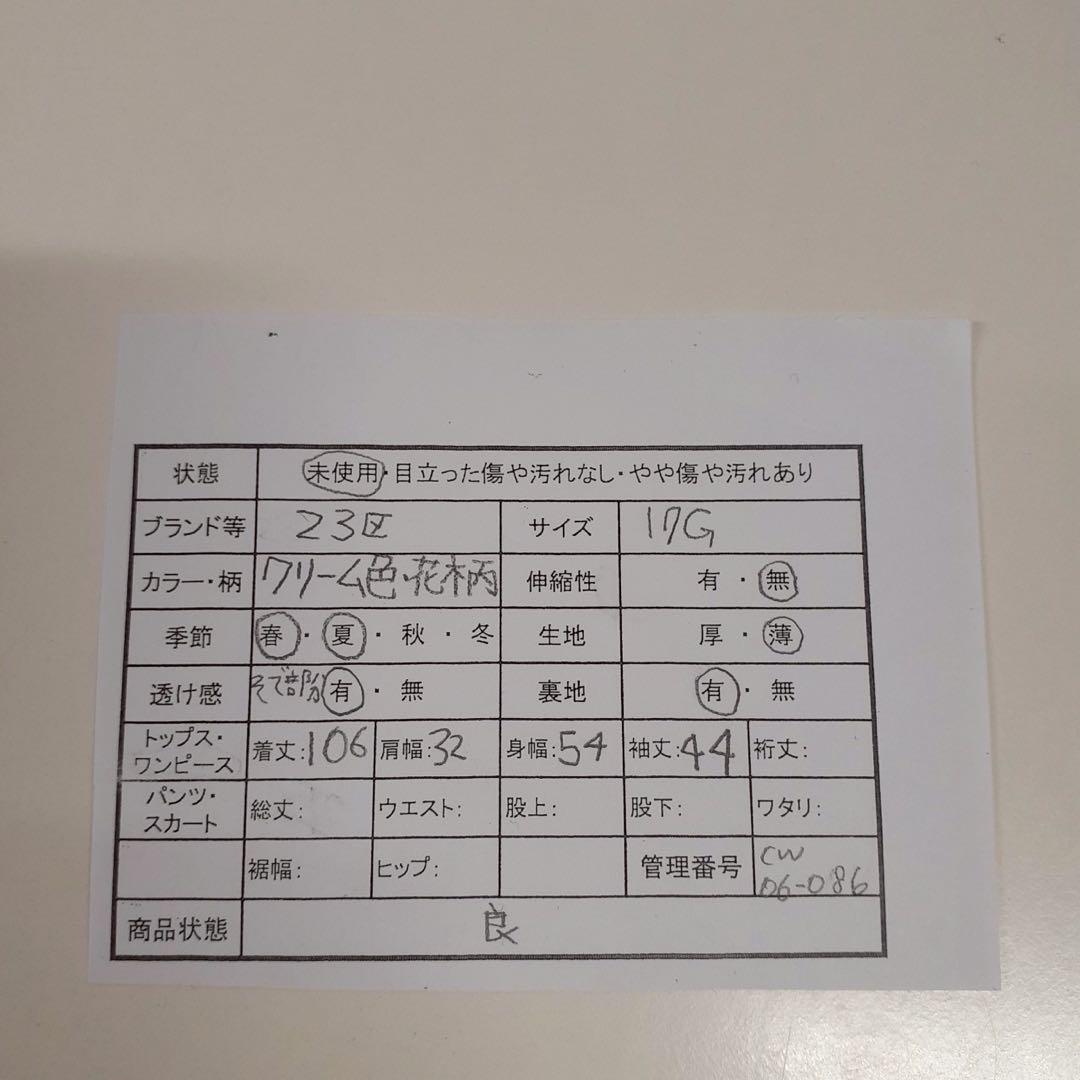 状態 未使用・目立った傷や汚れなし・やや傷や汚れあり
ブランド等 23区 サイズ 17G
カラー・柄 クリーム色・花柄 伸縮性 有・無
季節 春・夏・秋・冬 生地 厚・薄
透け感 そで部分 有・無 裏地 有・無
トップス・
ワンピース 着丈:106 肩幅:32 身幅:54 袖丈:44 裄丈:
パンツ・
スカート 総丈: ウエスト: 股上: 股下: ワタリ:
裾幅: ヒップ: 管理番号 CW
06-086
商品状態 良